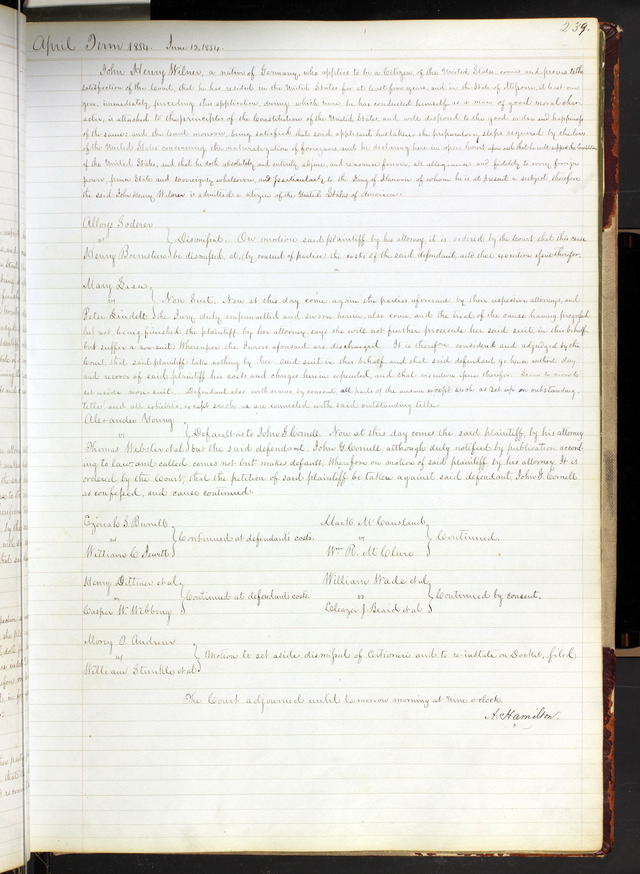 239.
April Term 1854. June 12, 1854.
John Henry Wilner, a native of Germany, who applies to be a Citizen of the United States, comes and proves to the
satisfaction of the Court, that he has resided in the United States for at least five years, and in the State of Missouri, at least one
year, immediately preceding this application, during which time he has conducted himself as a man of good moral char-
acter, is attached to the principles of the Constitution of the United States and well disposed to the good order and happiness
of the same: and the Court moreover being satisfied that said applicant has taken the preparatory steps required by the laws
of the United States concerning the naturalization of foreigners and he declaring here in open Court upon oath that he will support the Constitution
of the United States, and that he doth absolutely and entirely abjure and renounce forever, all allegiance and fidelity to every foreign
power, prince State and sovereignty whatsoever, and particularly to the King of Hanover of whom he is at present a subject, therefore
the said John Henry Wilner is admitted a citizen of the United States of America.
Alloys Soderer
vs
Henry Boernstein
Dismissed. On motion said plaintiff by his attorney, it is ordered by the Court that this cause
be dismissed, at, (by consent of parties) the costs of the said defendant, and that execution issue therefor.
Mary
vs
Peter Lindell
Non Suit. Now at this day come again the parties aforesaid by their respective attorneys, and
the Jury duly empannelled and sworn herein, also come, and the trial of the cause having progressed
but not being finished the plaintiff by her attorney, says she will not further prosecute her said suit, in this behalf
but suffer a non suit: Whereupon the Jurors aforesaid are discharged. It is therefore considered and adjudged by the
Court, that said plaintiff take nothing by her said suit in this behalf and that said defendant go hence without day
and recover of said plaintiff his costs and charges herein expended, and that execution issue therefor. Leave to move to
set aside non-suit. Defendant also withdraws, by consent, all parts of the answer except such as set up an outstanding
title, and all exhibits, except such as are connected with said outstanding title.
Alexander Young
vs
Thomas Webster et al
Default as to John G. Cornell. Now at this day comes the said plaintiff, by his attorney
but the said defendant John G. Cornell although duly notified by publication accord-
ing to law, and called, comes not but makes default, Wherefore on motion of said plaintiff by his attorney It is
ordered by the Court, that the petition of said plaintiff be taken against said defendant John G. Cornell
as confessed, and cause continued.
S. Burnett
vs
William C. Jewett
Continued at defendants costs.
Mark McCausland
vs
Wm. R. McClure
Continued.
Henry Dittmer et al
vs
Casper W. Webbing
Continued at defendants costs.
William Wade et al
vs
Eleazer J. Beard et al
Continued by consent.
O. Andrews
vs
William Stunkle et al
Motion to set aside dismissal of Certiorari and to re-instate on Docket, filed
The Court adjourned until tomorrow morning at nine o'clock.
A. Hamilton.